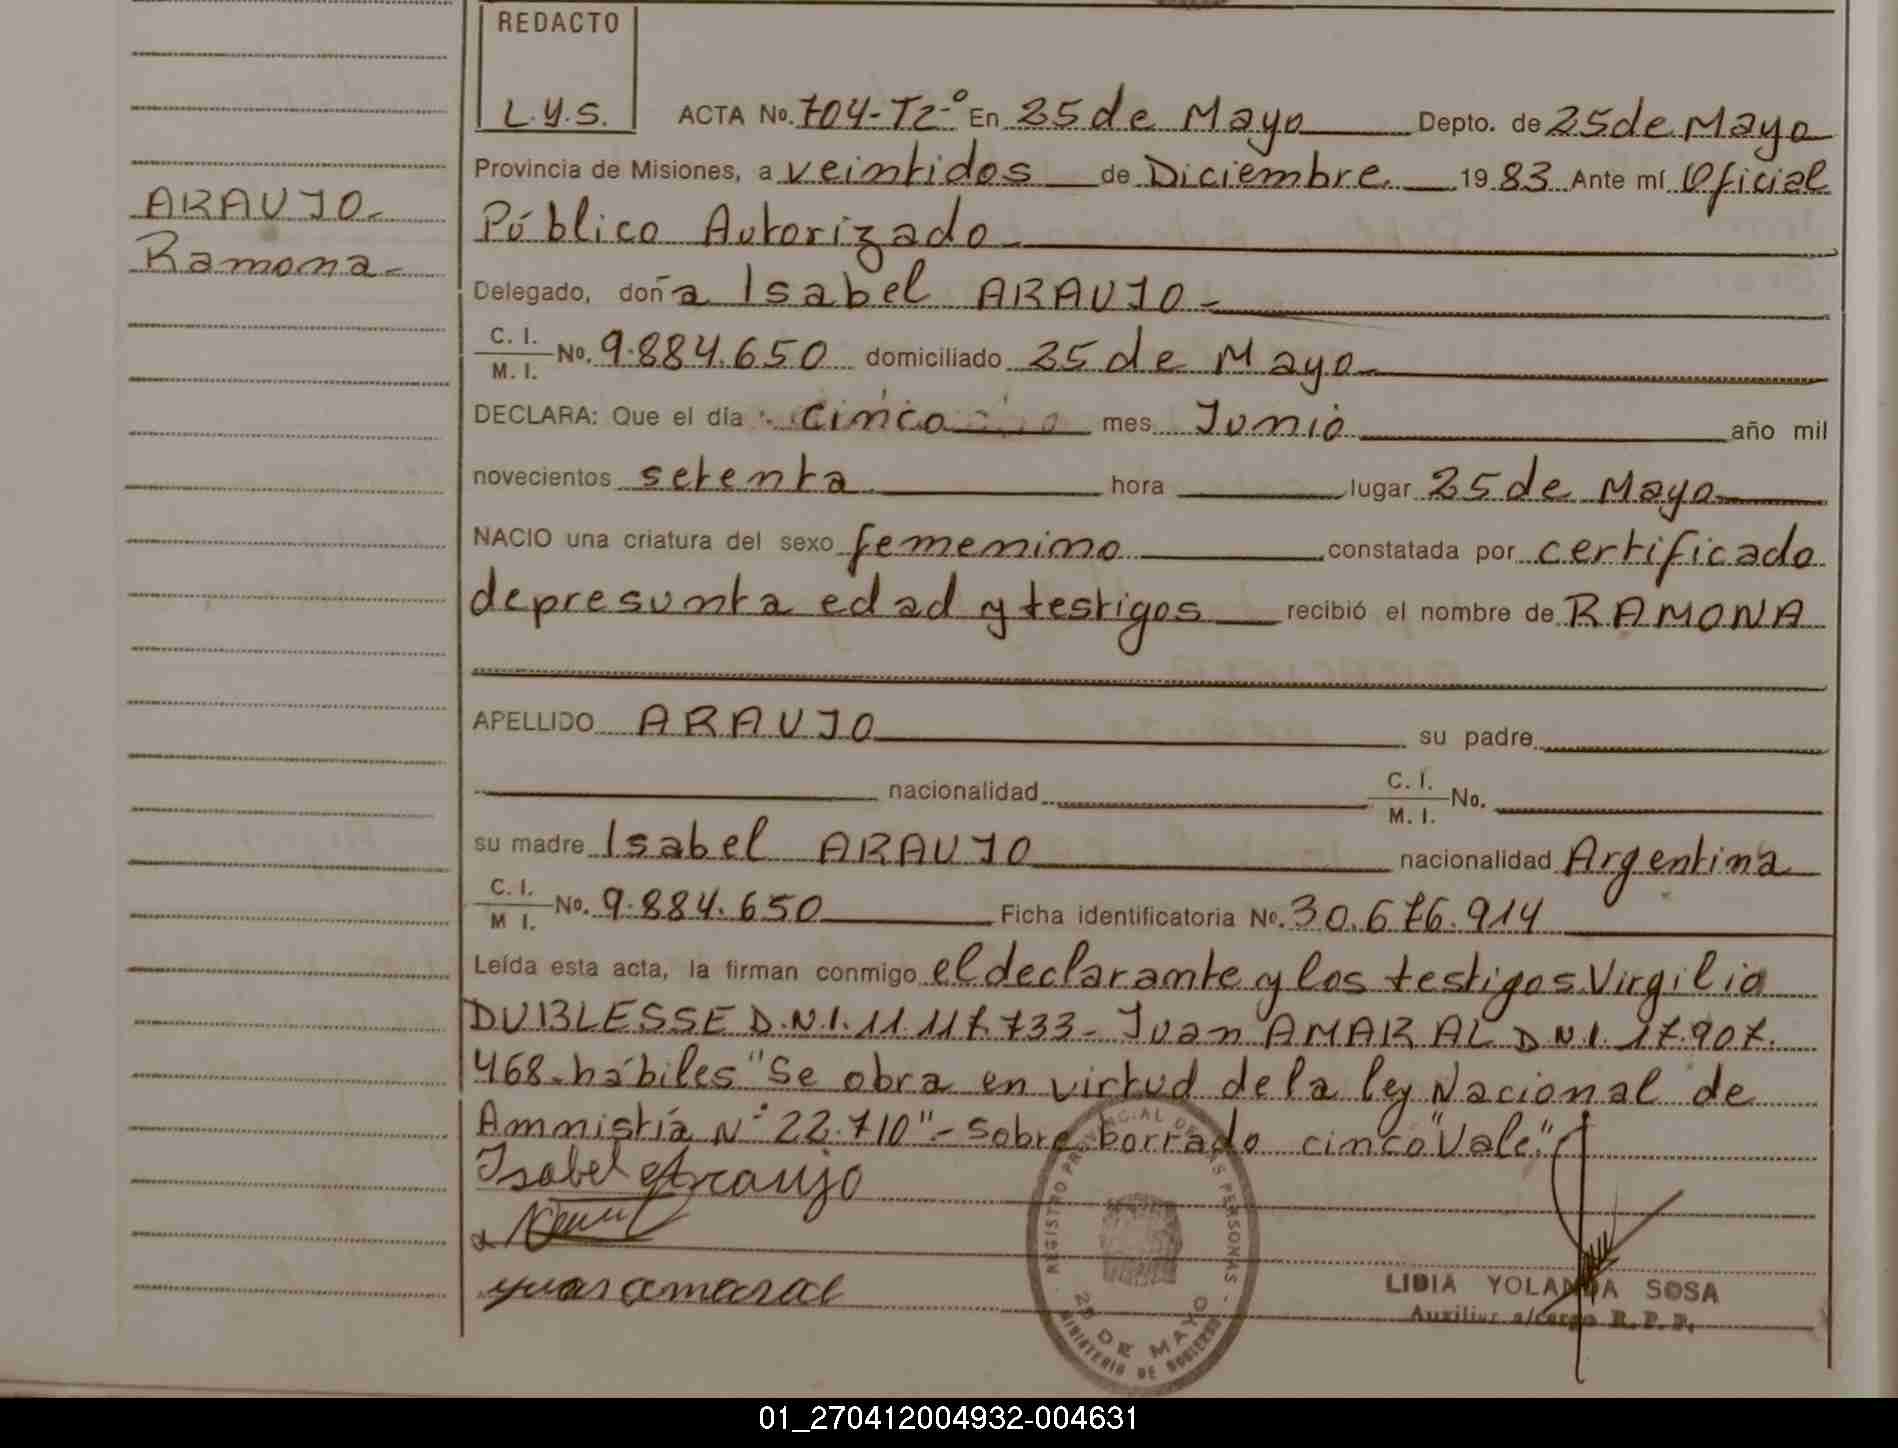 REDACTO
L.Y.S.
ACTA No. 704-T2-º En 25 de Mayo Depto. de 25 de Mayo
Provincia de Misiones, a veintidos de Diciembre 1983 Ante mí Oficial
ARAUJO-
Público Autorizado-
Ramona-
Delegado, doña Isabel ARAUJO-
C. I.
M. I. No. 9.884.650 domiciliado 25 de Mayo-
DECLARA: Que el día cinco mes Junio año mil
novecientos setenta hora lugar 25 de Mayo
NACIO una criatura del sexo femenino constatada por certificado
de presunta edad y testigos recibió el nombre de RAMONA
APELLIDO ARAUJO su padre
nacionalidad C. I. M. I. No.
su madre Isabel ARAUJO nacionalidad Argentina
C. I.
M I. No. 9.884.650 Ficha identificatoria No. 30.676.914
Leída esta acta, la firman conmigo el declarante y los testigos Virgilio
DUBLESSE D.N.I. 11.117.733- Juan AMARAL D.N.I. 17.907.
468-hábiles "Se obra en virtud de la ley Nacional de
Ammistía Nº 22.710"- Sobre borrado cinco "Vale"
Isabel Araujo
juan amaral
REGISTRO PROVINCIAL DE LAS PERSONAS
25 DE MAYO
MINISTERIO DE GOBIERNO
LIDIA YOLANDA SOSA
Auxiliar a/cargo R. P. P.
01_270412004932-004631